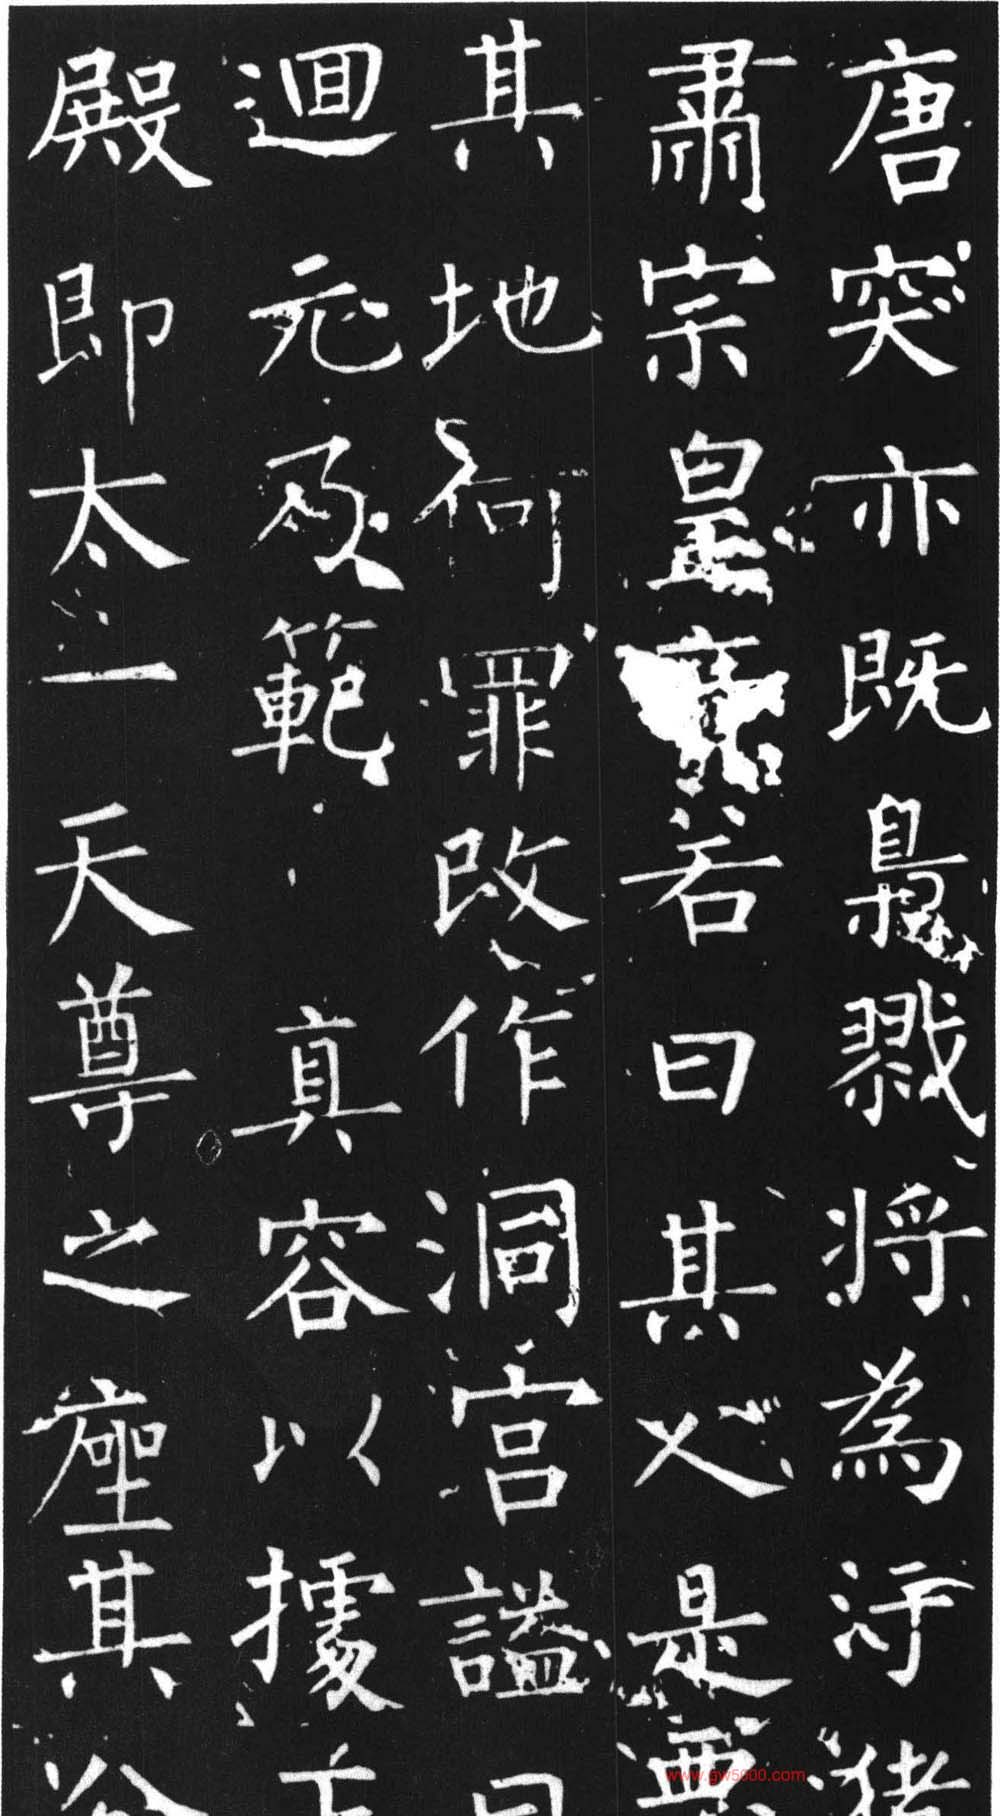 唐突亦既梟戮将為汙猪
肅宗皇帝若曰其人是惡
其地何罪改作洞宮謚曰
迴元及範真容以據正
殿即太一天尊之座其分
www.gw5000.com